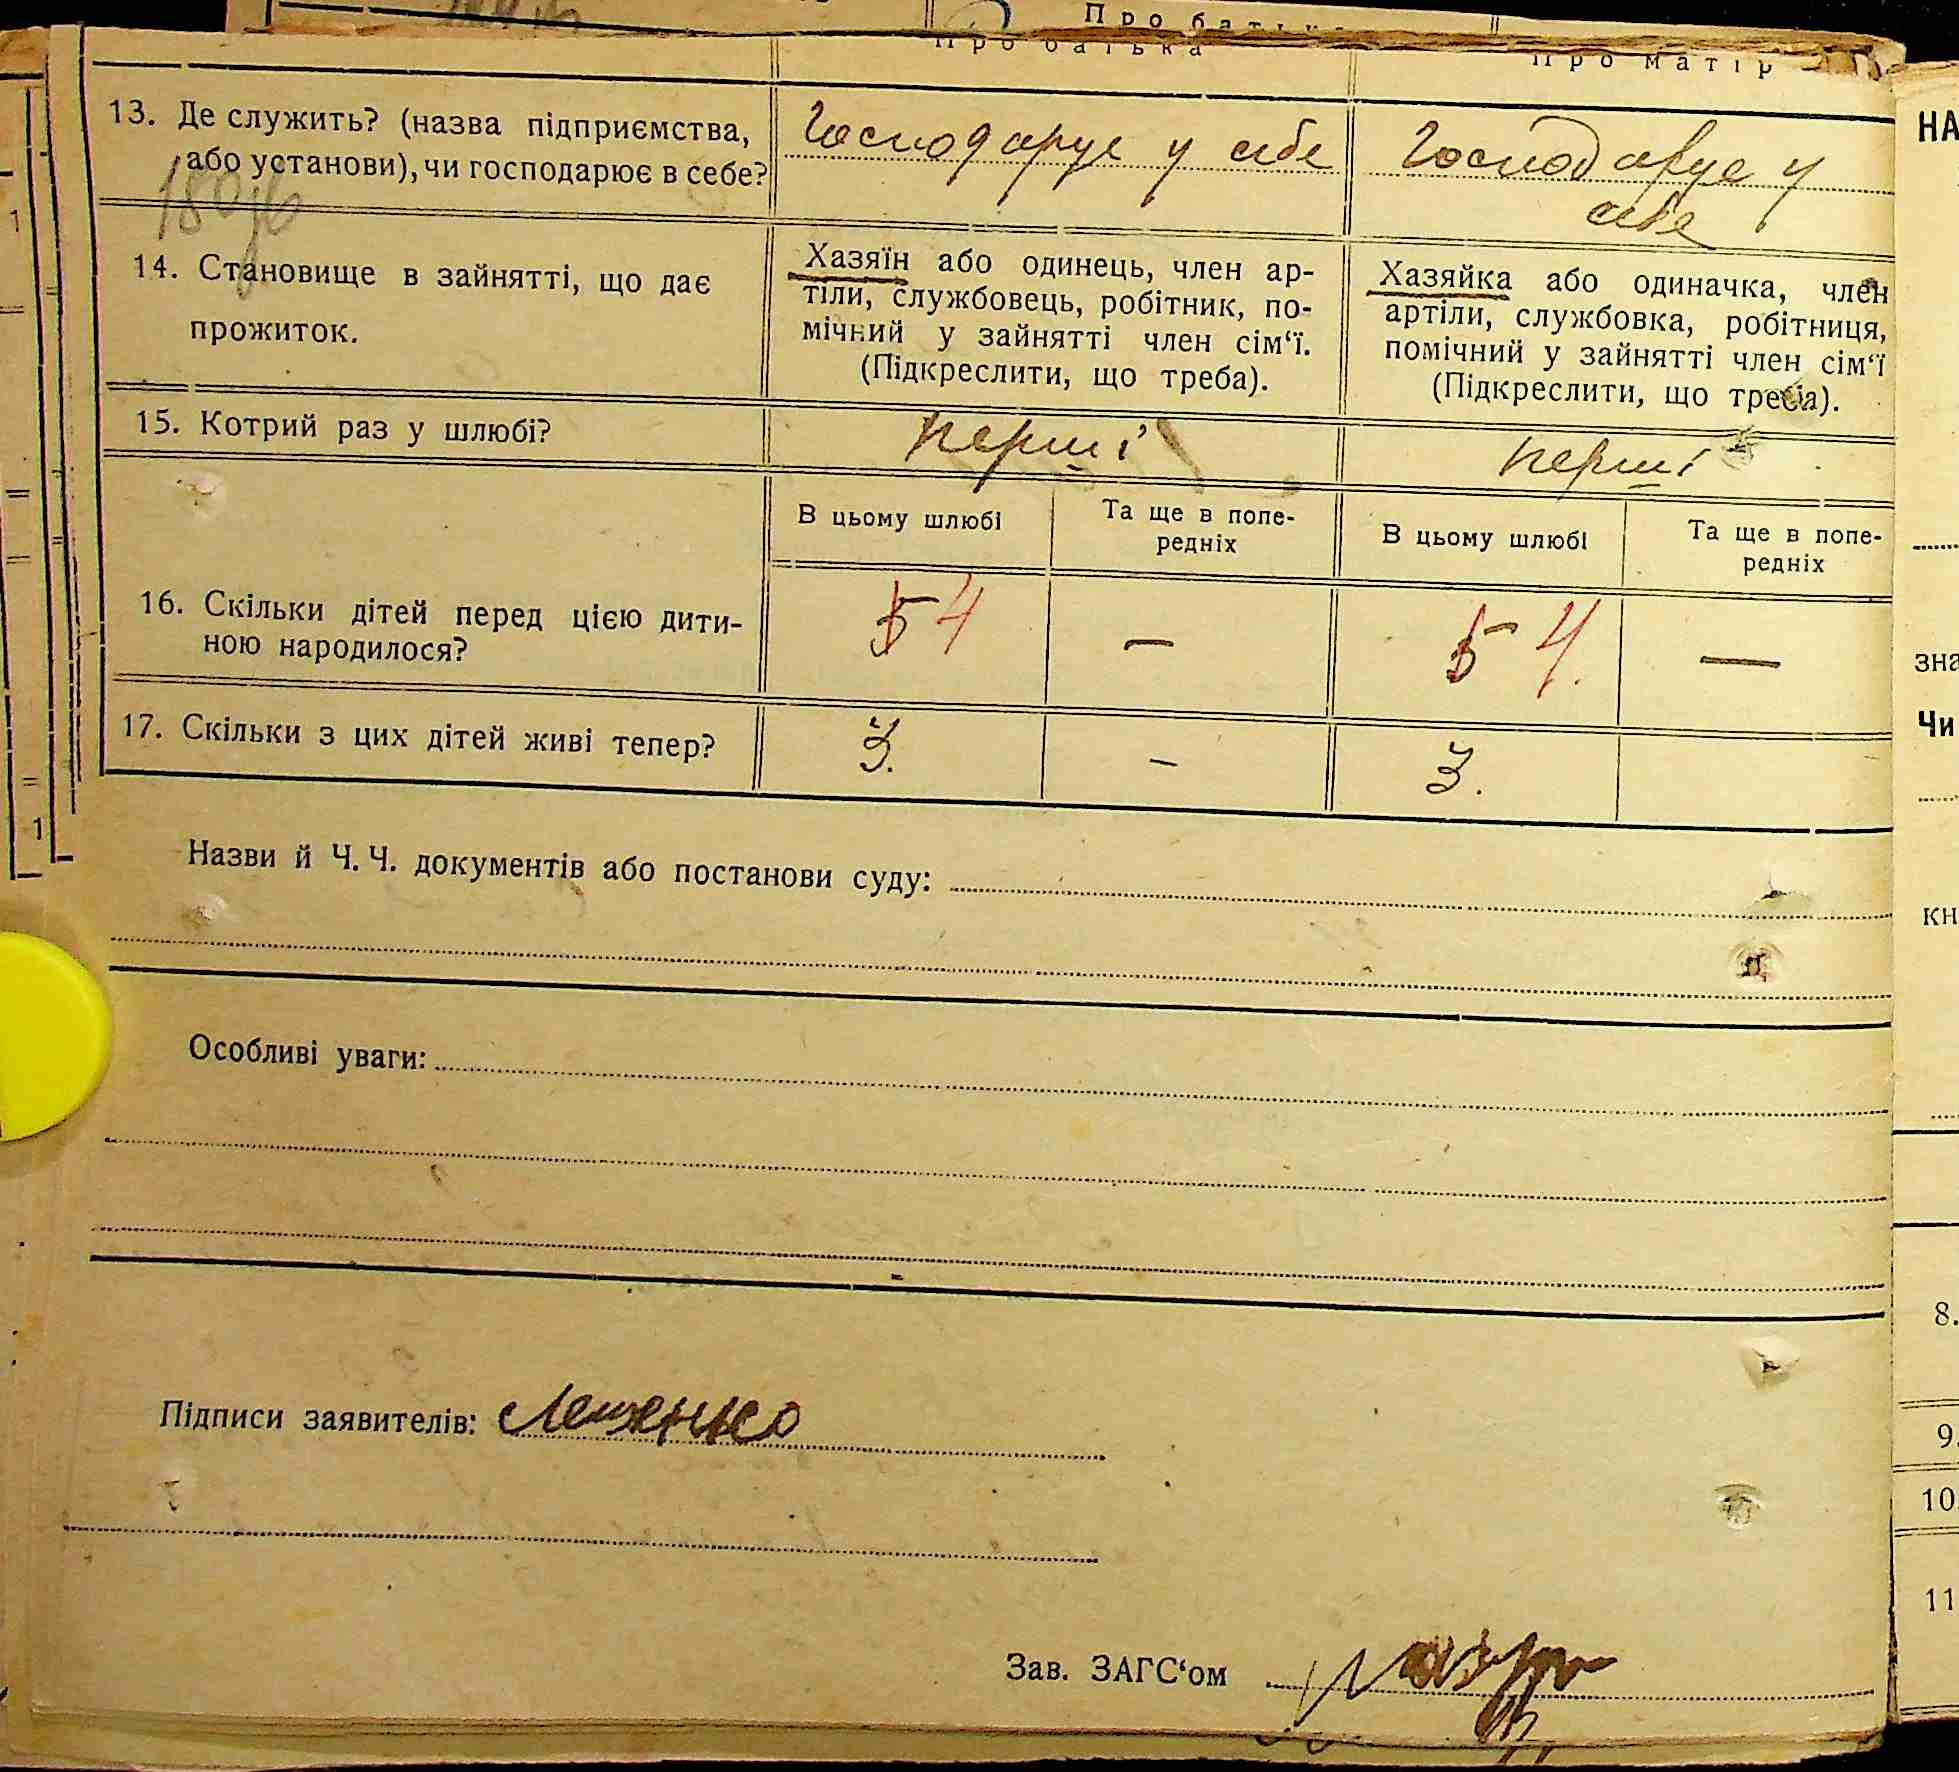 Про батька
Про батька
Про матір
13. Де служить? (назва підприємства,
або установи), чи господарює в себе?
Господарує у себе
Господарує у
себе
180
14. Становище в зайнятті, що дає
прожиток.
Хазяїн або одинець, член ар-
тіли, службовець, робітник, по-
мічний у зайнятті член сім‘ї.
(Підкреслити, що треба).
Хазяйка або одиначка, член
артіли, службовка, робітниця,
помічний у зайнятті член сім‘ї
(Підкреслити, що треба).
15. Котрий раз у шлюбі?
перші
перші
В цьому шлюбі
Та ще в попе-
редніх
В цьому шлюбі
Та ще в попе-
редніх
16. Скільки дітей перед цією дити-
ною народилося?
5 4 — 5 4. —
17. Скільки з цих дітей живі тепер?
3. - 3.
Назви й Ч. Ч. документів або постанови суду:
Особливі уваги:
Підписи заявителів: Лещенко
Зав. ЗАГС‘ом
НА
зна
Чи
кн
8.
9.
10
11
1
1